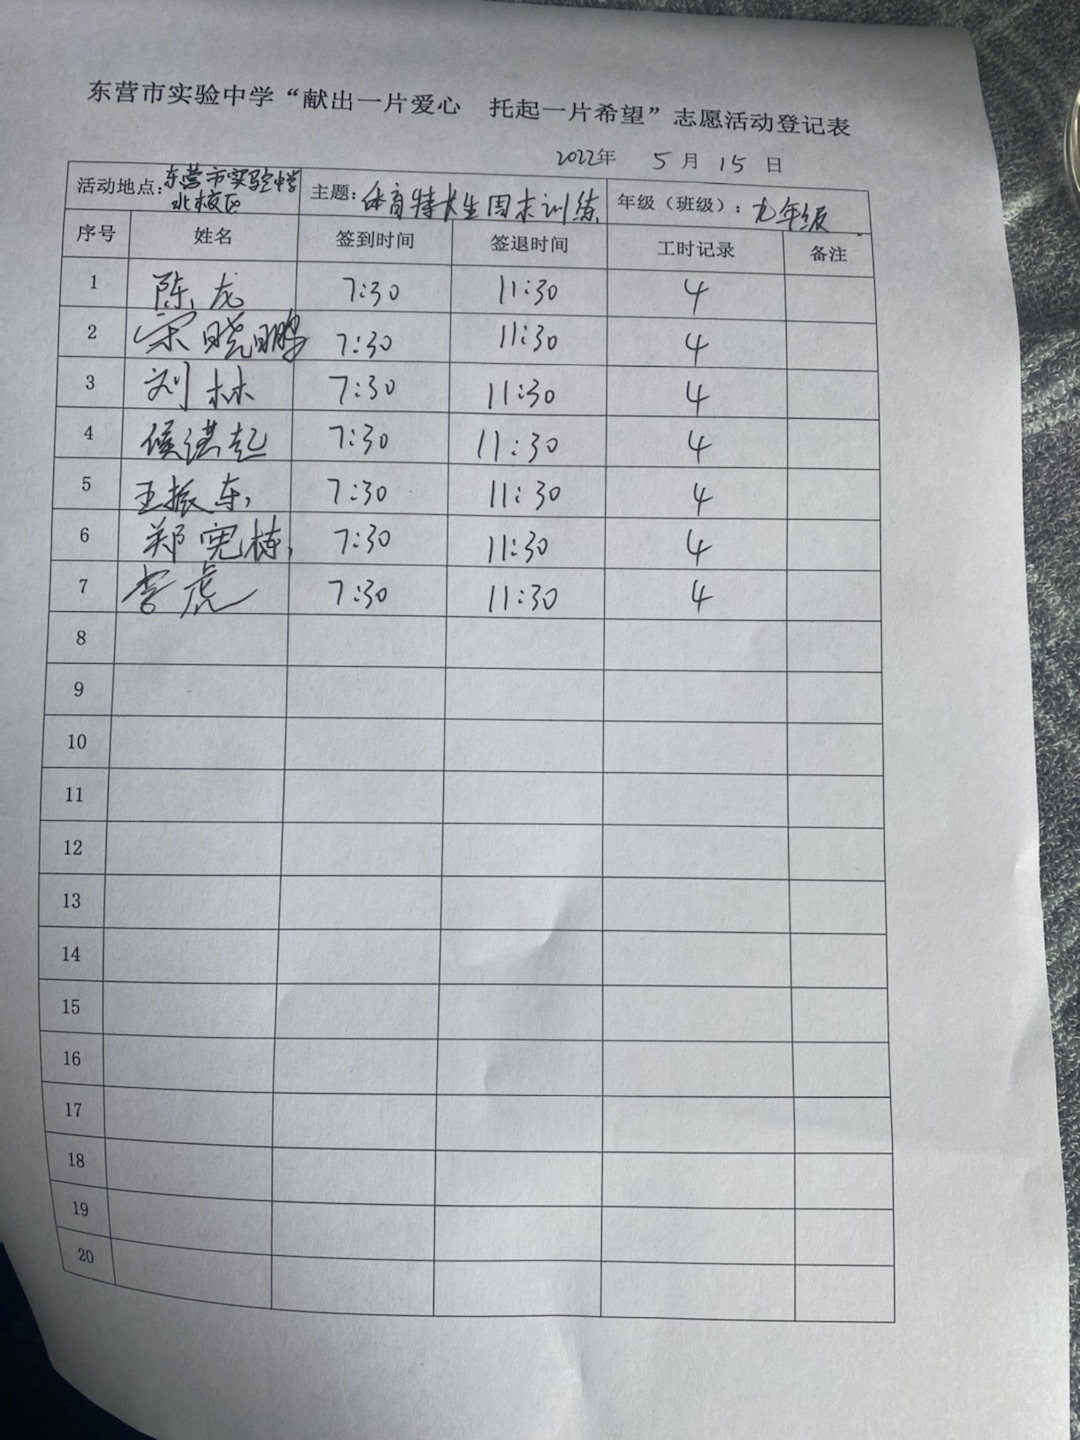 东营市实验中学“献出一片爱心　托起一片希望”志愿活动登记表
2022年 5 月 15 日
活动地点：东营市实验中学北校区 主题：体育特长生周末训练 年级（班级）：九年级
序号 姓名 签到时间 签退时间 工时记录 备注
1 陈龙 7:30 11:30 4
2 宋晓鹏 7:30 11:30 4
3 刘林 7:30 11:30 4
4 7:30 11:30 4
5 王振东 7:30 11:30 4
6 郑宪栋 7:30 11:30 4
7 李虎 7:30 11:30 4
8
9
10
11
12
13
14
15
16
17
18
19
20